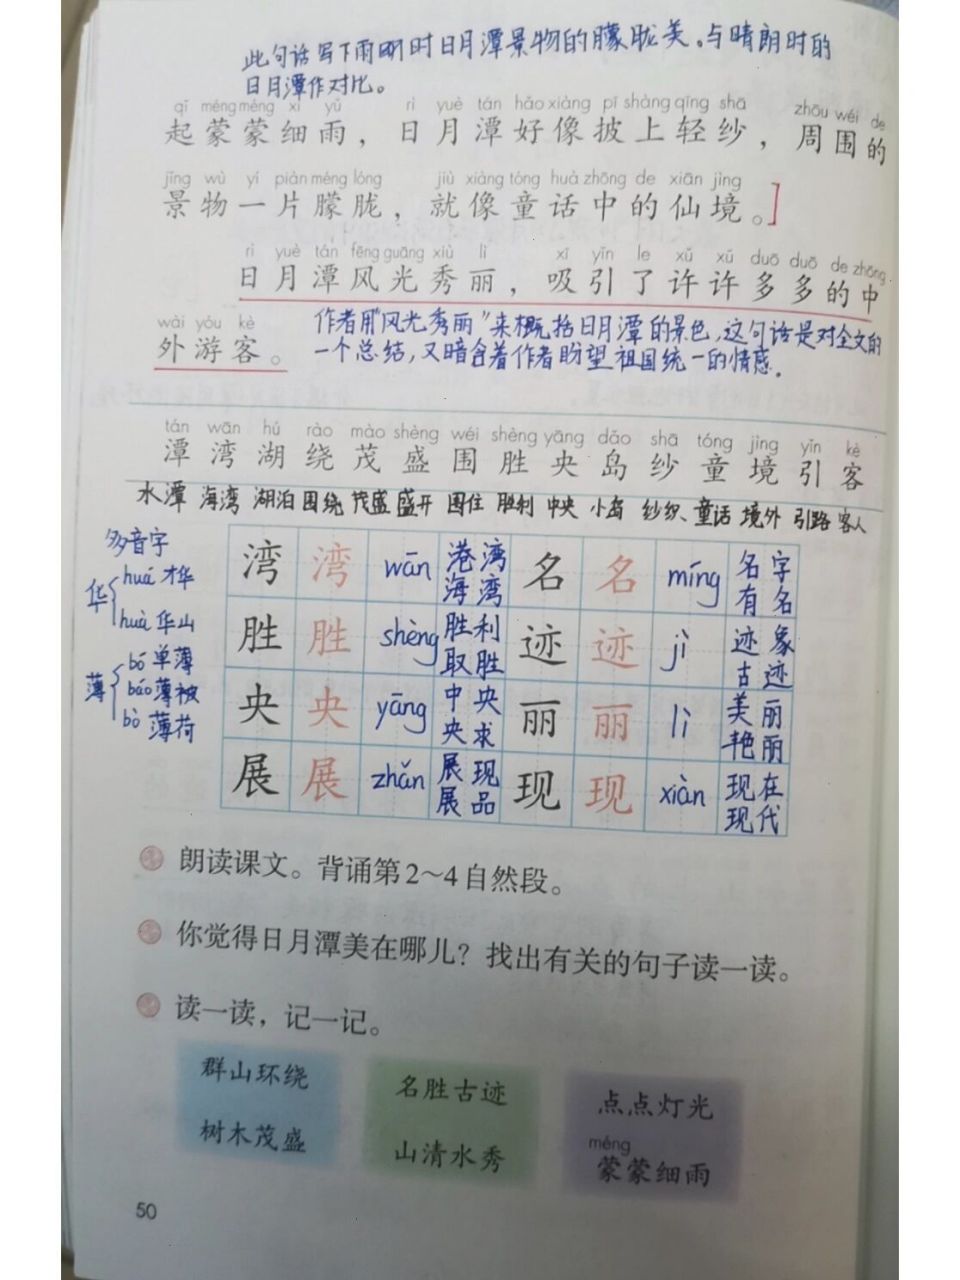 此句话写下雨时日月潭景物的朦胧美。与晴朗时的
日月潭作对比。
qǐ méng méng xì yǔ rì yuè tán hǎo xiàng pī shàng qīng shā zhōu wéi de
起蒙蒙细雨，日月潭好像披上轻纱，周围的
jǐng wù yí piàn méng lóng jiù xiàng tóng huà zhōng de xiān jìng
景物一片朦胧，就像童话中的仙境。]
rì yuè tán fēng guāng xiù lì xī yǐn le xǔ xǔ duō duō de zhōng
日月潭风光秀丽，吸引了许许多多的中
wài yóu kè
外游客。
作者用“风光秀丽”来概括日月潭的景色，这句话是对全文的
一个总结，又暗含着作者盼望祖国统一的情感。
tán wān hú rào mào shèng wéi shèng yāng dǎo shā tóng jìng yǐn kè
潭 湾 湖 绕 茂 盛 围 胜 央 岛 纱 童 境 引 客
水潭 海湾 湖泊 围绕 茂盛 盛开 围住 胜利 中央 小岛 纱织、童话 境外 引路 客人
多音字
华 huá 才华
huà 华山
薄 bó 单薄
báo 薄被
bò 薄荷
湾 湾 wān 港湾 海湾 名 名 míng 名字 有名
胜 胜 shèng 胜利 取胜 迹 迹 jì 迹象 古迹
央 央 yāng 中央 央求 丽 丽 lì 美丽 艳丽
展 展 zhǎn 展现 展品 现 现 xiàn 现在 现代
朗读课文。背诵第2～4自然段。
你觉得日月潭美在哪儿？找出有关的句子读一读。
读一读，记一记。
群山环绕 名胜古迹 点点灯光
méng
树木茂盛 山清水秀 蒙蒙细雨
50